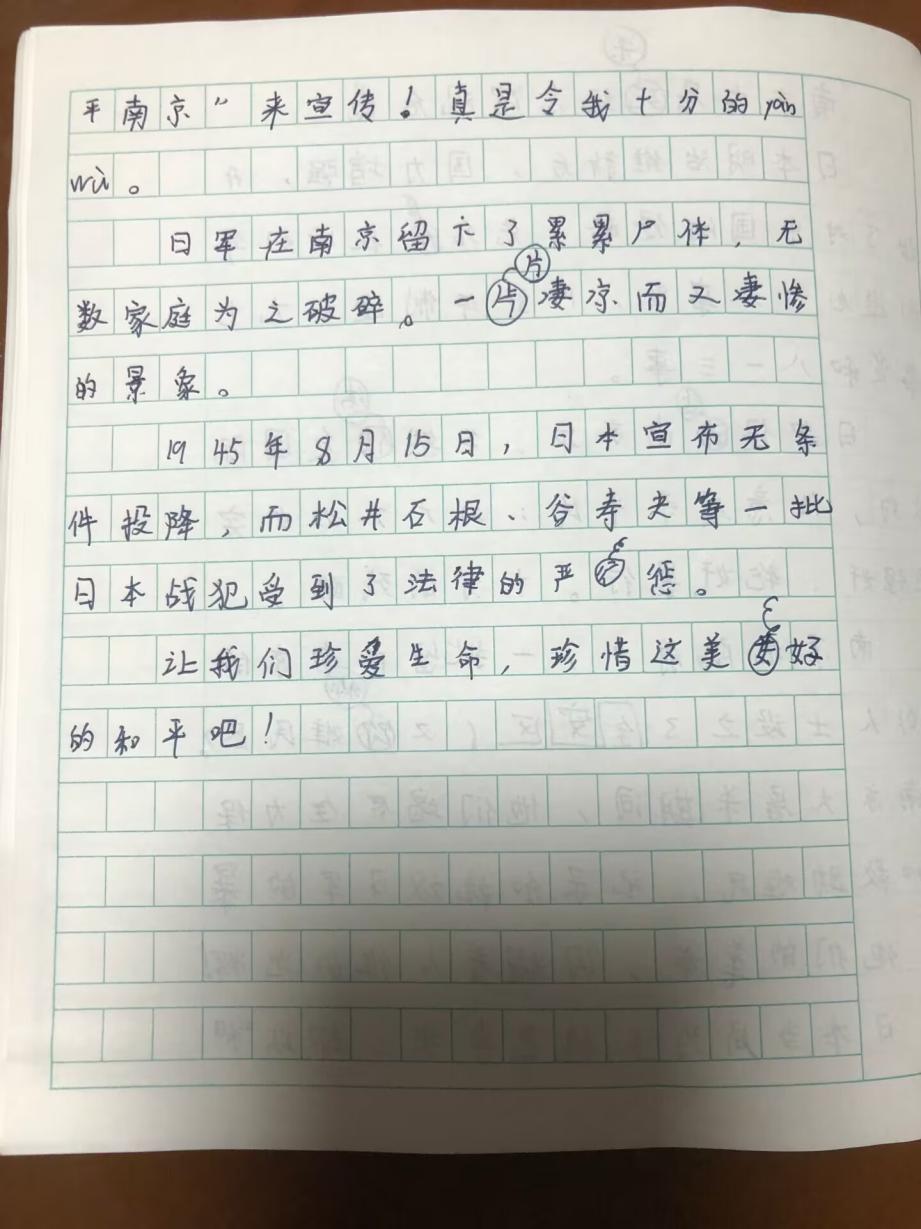 平南京”来宣传！真是令我十分的yàn
wù。
日军在南京留下了累累尸体，无
数家庭为之破碎。一片凄凉而又凄惨
的景象。
1945年8月15日，日本宣布无条
件投降，而松井石根、谷寿夫等一批
日本战犯受到了法律的严惩。
让我们珍爱生命，珍惜这美好
的和平吧！